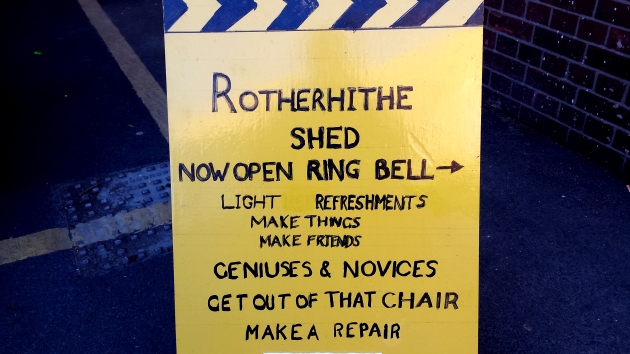 ROTHERHITHE
SHED
NOW OPEN RING BELL→
LIGHT REFRESHMENTS
MAKE THINGS
MAKE FRIENDS
GENIUSES & NOVICES
GET OUT OF THAT CHAIR
MAKE A REPAIR